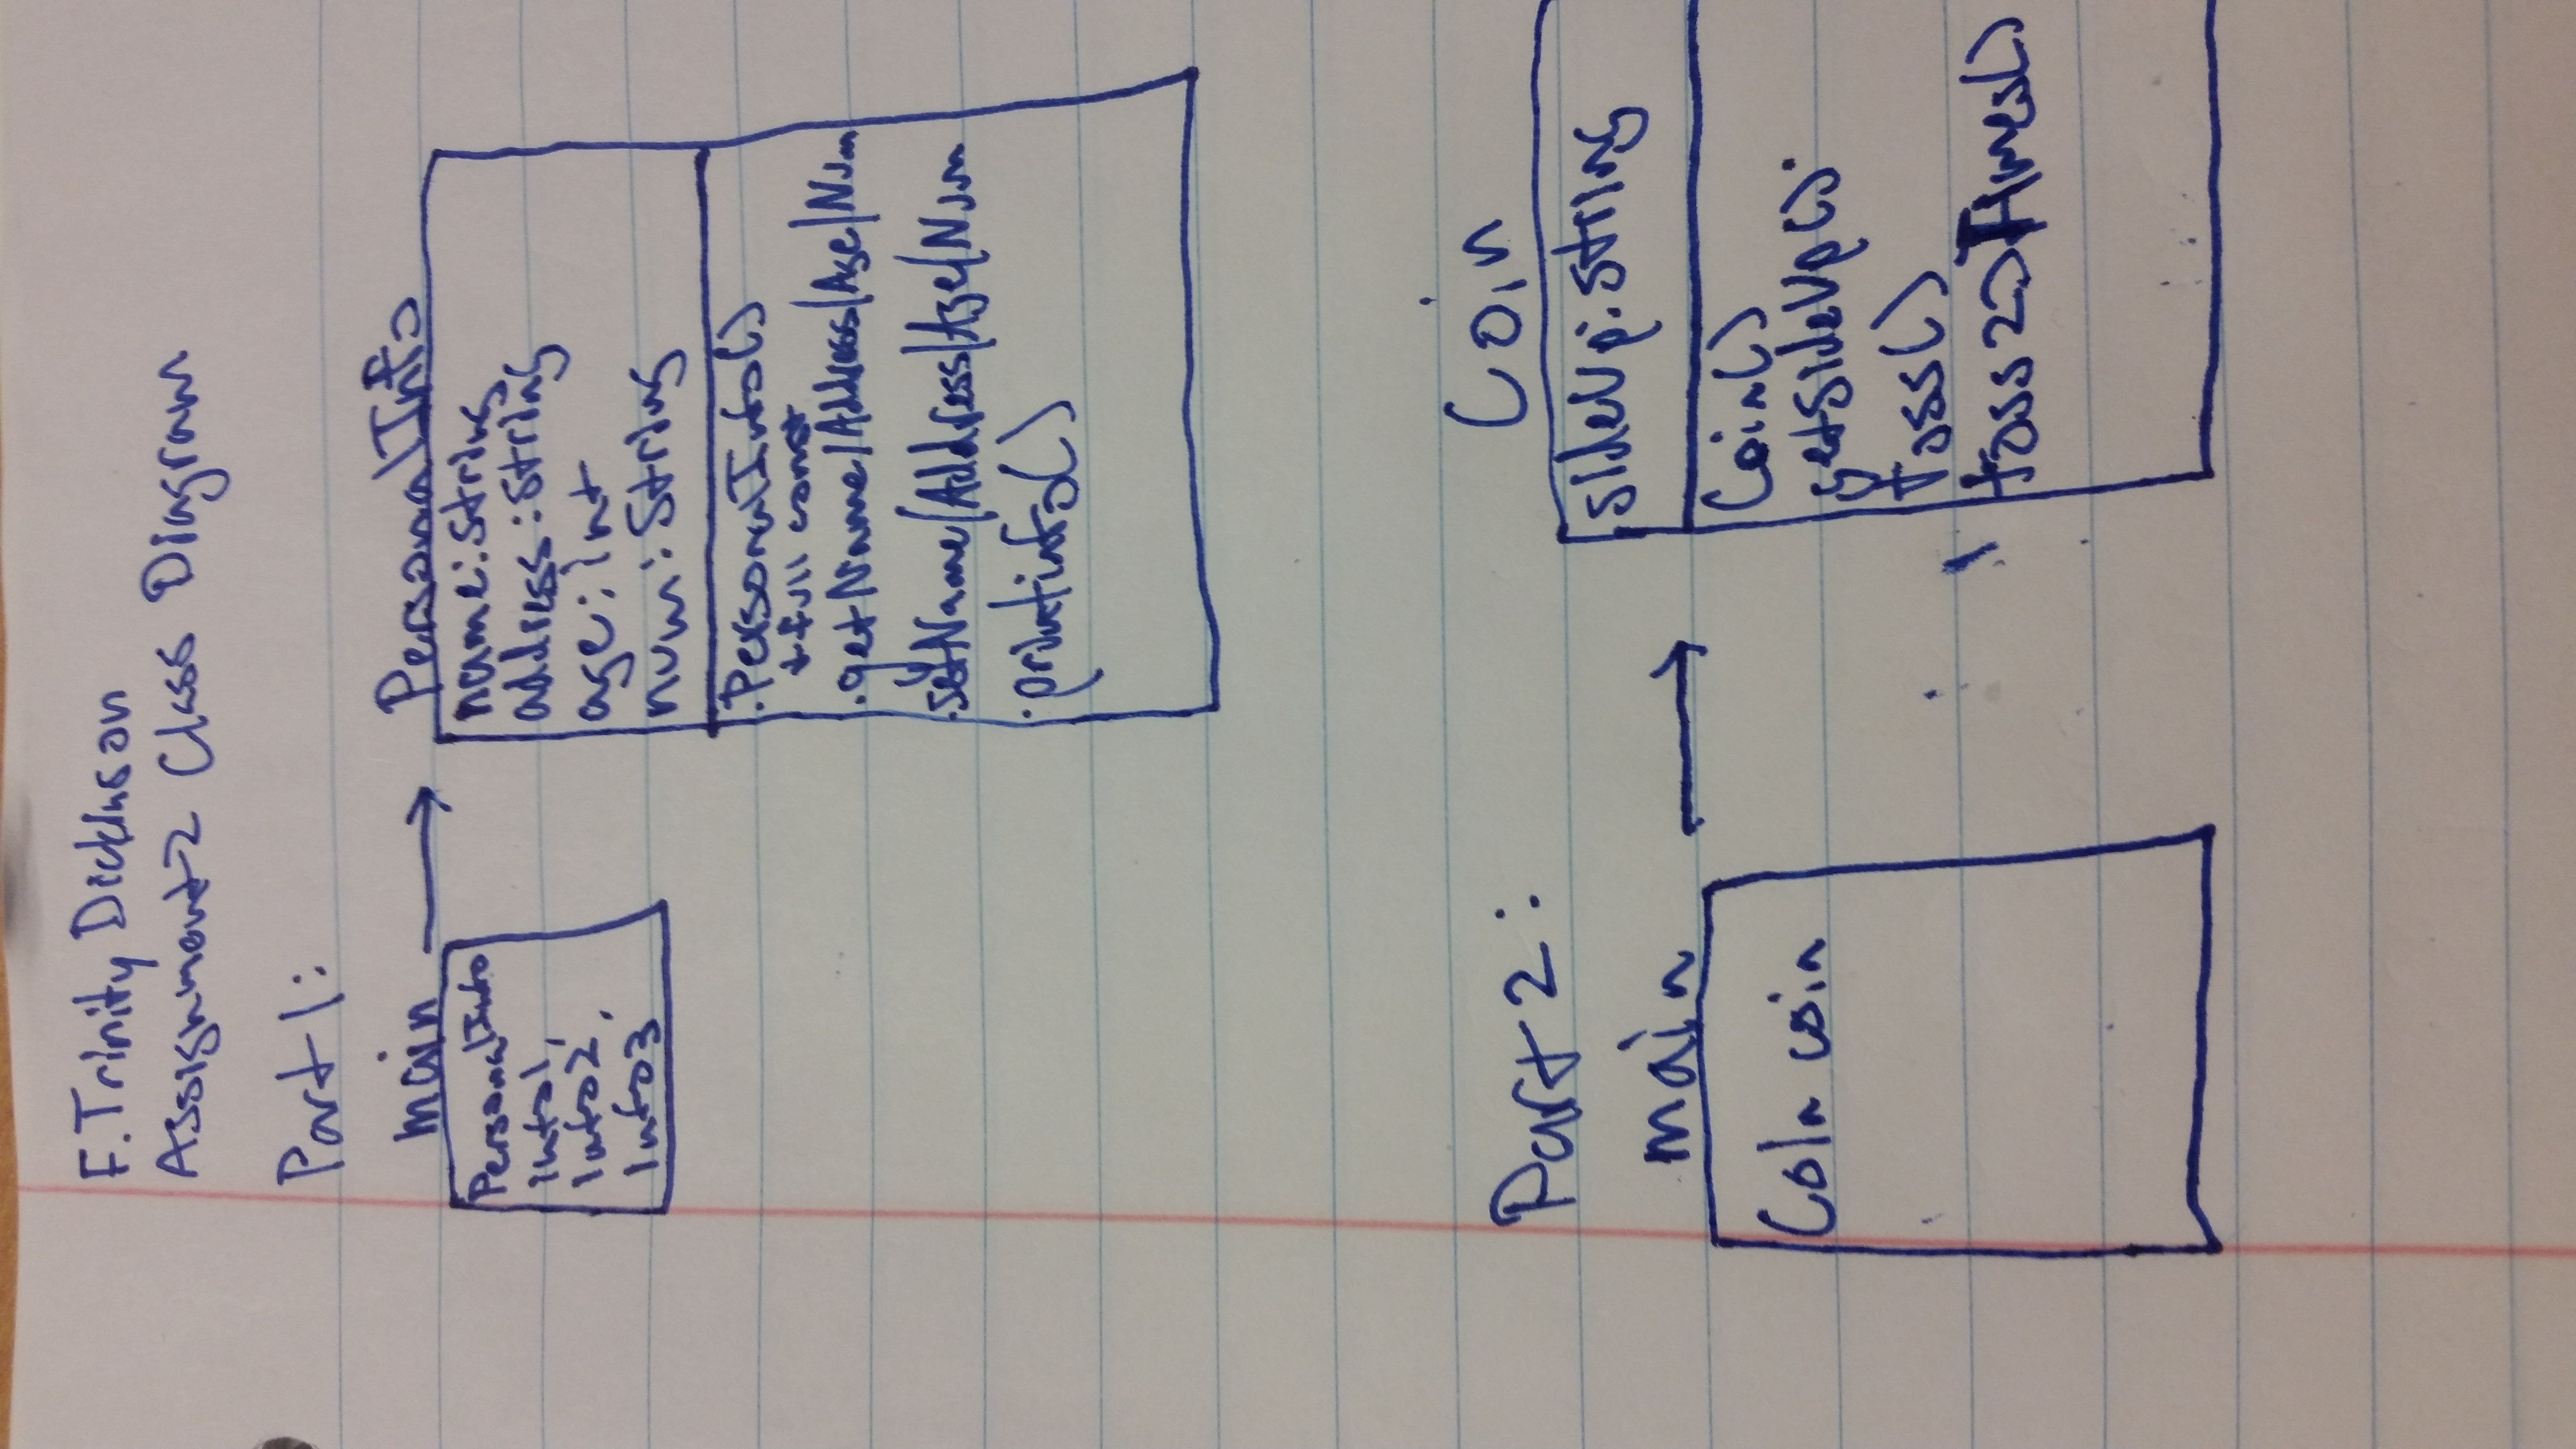 F. Trinity Dickinson
Assignment 2 Class Diagram
Part 1:
main
PersonalInfo
info1,
info2,
info3
PersonalInfo
name: String
address: String
age: int
num: String
. PersonalInfo()
+ full const
. getName/Address/Age/Num
. setName/Address/Age/Num
. printinfo()
Part 2:
main
Coin coin
Coin
sideUp: String
Coin()
getSideUp()
toss()
toss20Times()